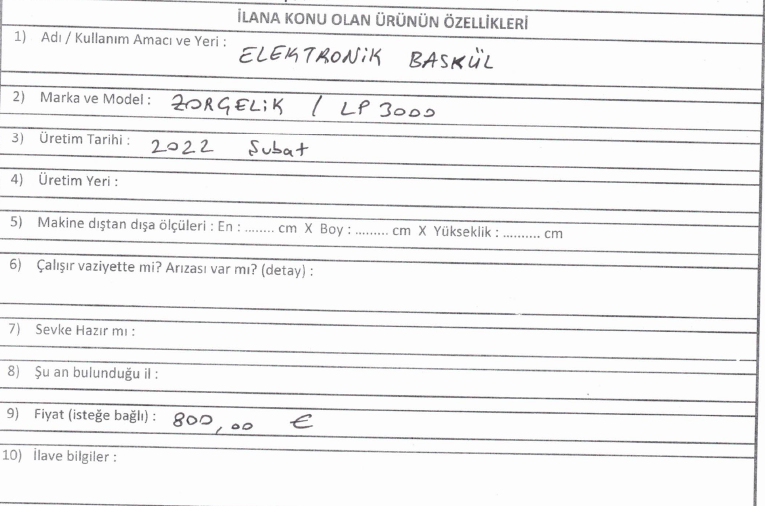 İLANA KONU OLAN ÜRÜNÜN ÖZELLİKLERİ
1) Adı / Kullanım Amacı ve Yeri : ELEKTRONİK BASKÜL
2) Marka ve Model : ZORGELİK / LP 3000
3) Üretim Tarihi : 2022 Şubat
4) Üretim Yeri :
5) Makine dıştan dışa ölçüleri : En : ........ cm X Boy : ......... cm X Yükseklik : .......... cm
6) Çalışır vaziyette mi? Arızası var mı? (detay) :
7) Sevke Hazır mı :
8) Şu an bulunduğu il :
9) Fiyat (isteğe bağlı) : 800,00 €
10) İlave bilgiler :